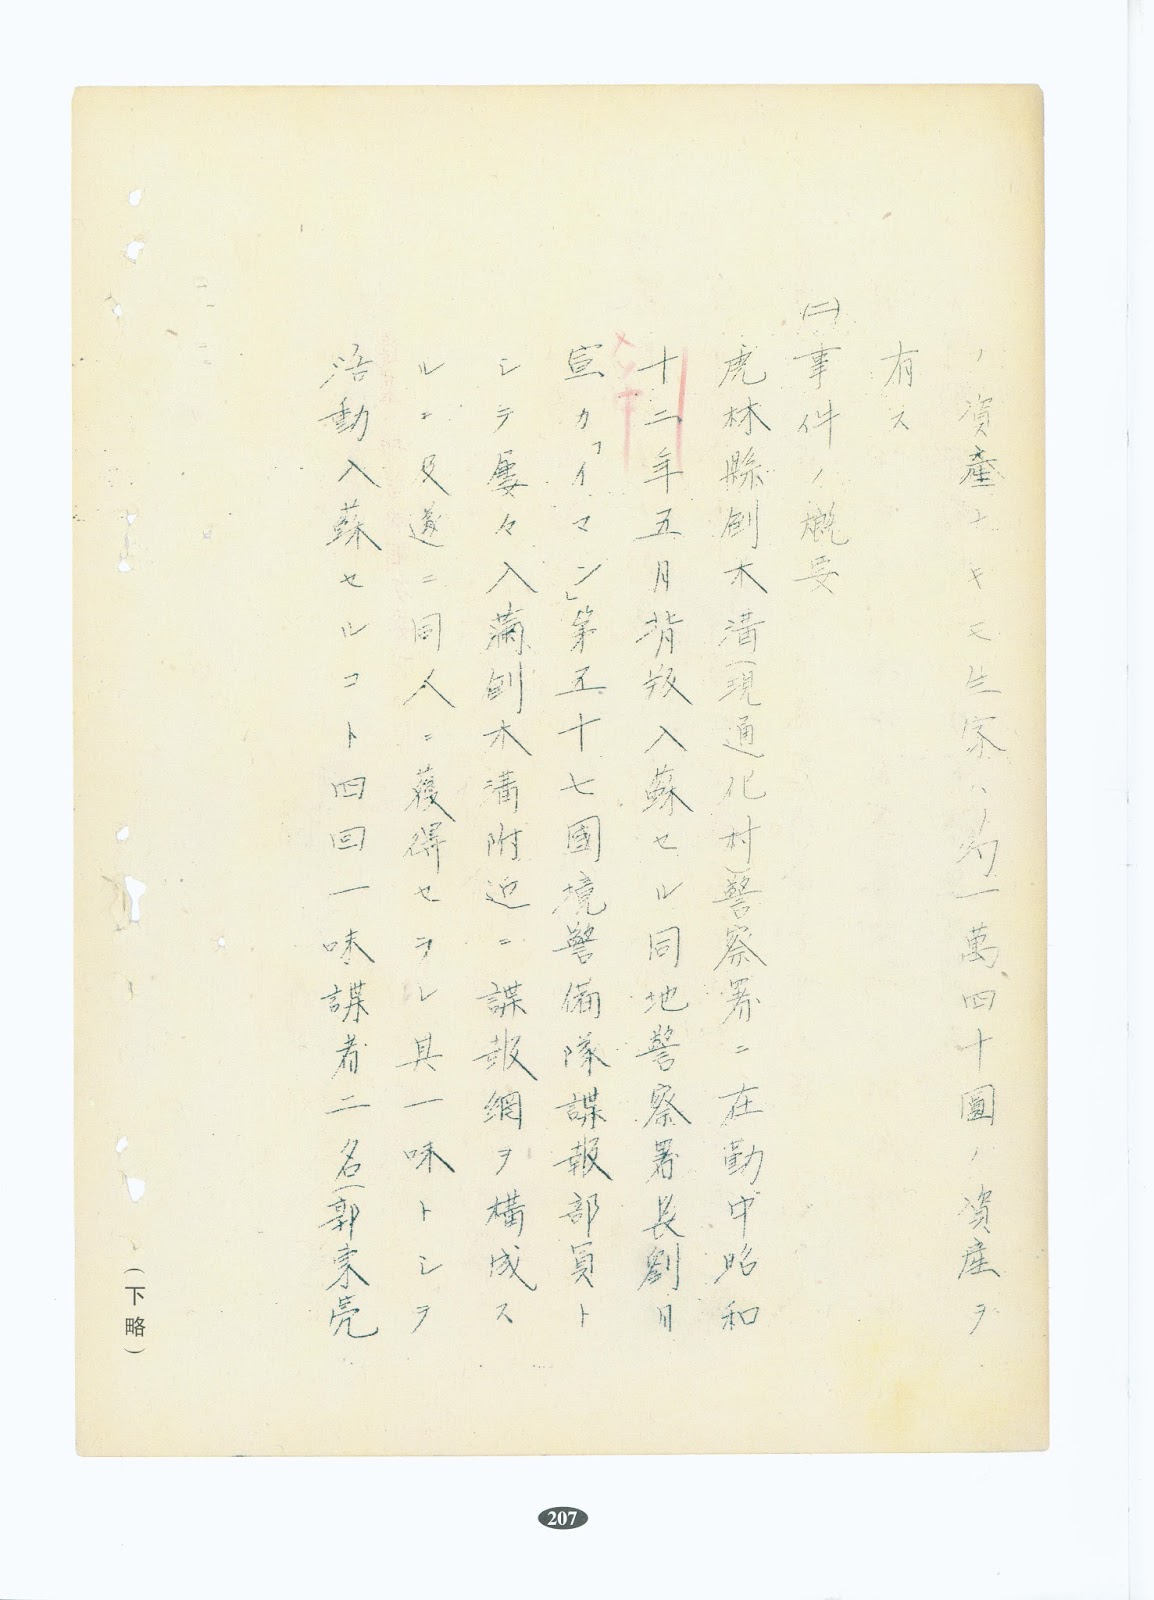 ノ資產ナキモ生家ハ約一萬四十圓ノ資産ヲ
有ス
(二)事件ノ概要
虎林縣倒木溝(現通化村)警察署ニ在勤中昭和
十二年五月背叛入蘇セル同地警察署長劉日
宣カ「イマン」第五十七國境警備隊諜報部員ト
シテ屡々入滿倒木溝附近ニ諜報網ヲ構成ス
ルニ及遂ニ同人ニ獲得セラレ其一味トシテ
活動入蘇セルコト四回一味諜者二名(郭東亮
(下略)
207